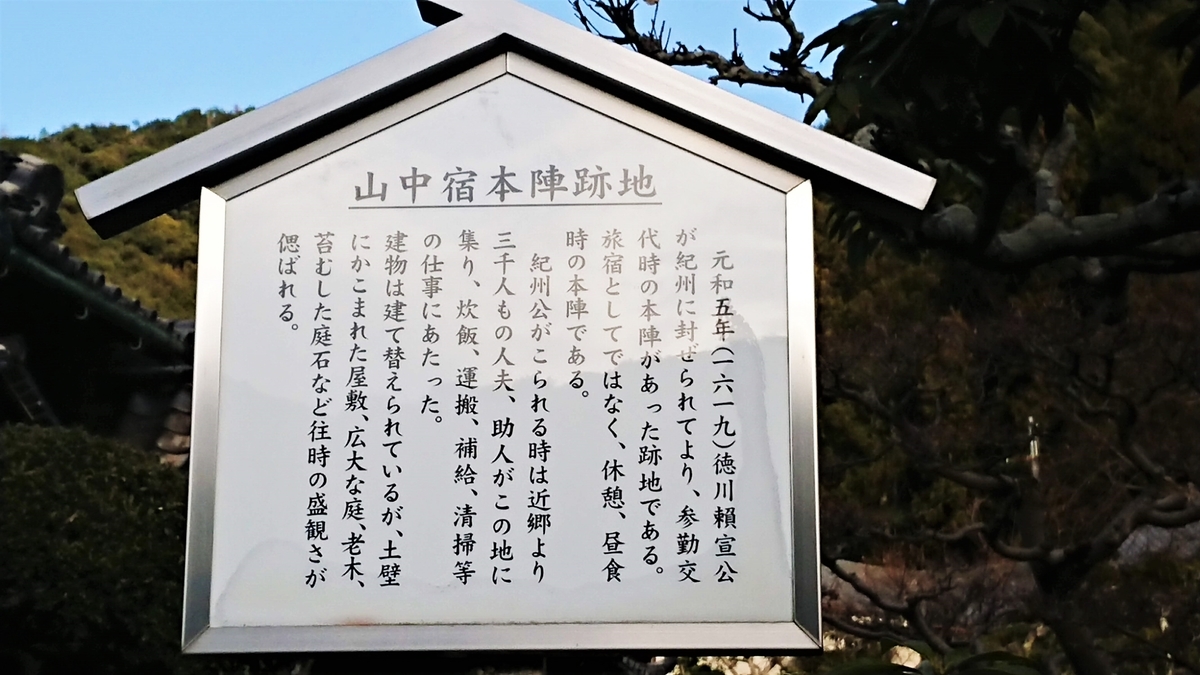 山中宿本陣跡地
元和五年(一六一九)徳川賴宣公
が紀州に封ぜられてより、参勤交
代時の本陣があった跡地である。
旅宿としてではなく、休憩、昼食
時の本陣である。
紀州公がこられる時は近郷より
三千人もの人夫、助人がこの地に
集り、炊飯、運搬、補給、清掃等
の仕事にあたった。
建物は建て替えられているが、土壁
にかこまれた屋敷、広大な庭、老木、
苔むした庭石など往時の盛観さが
偲ばれる。